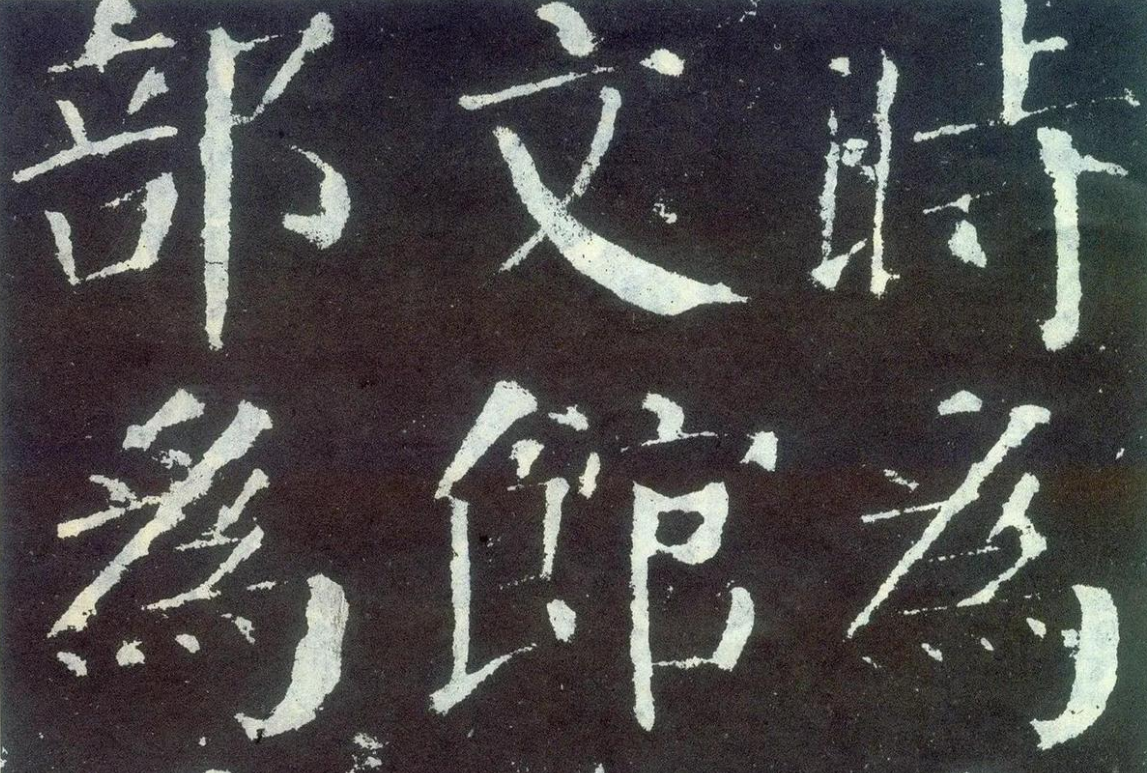 時為
文館
部為